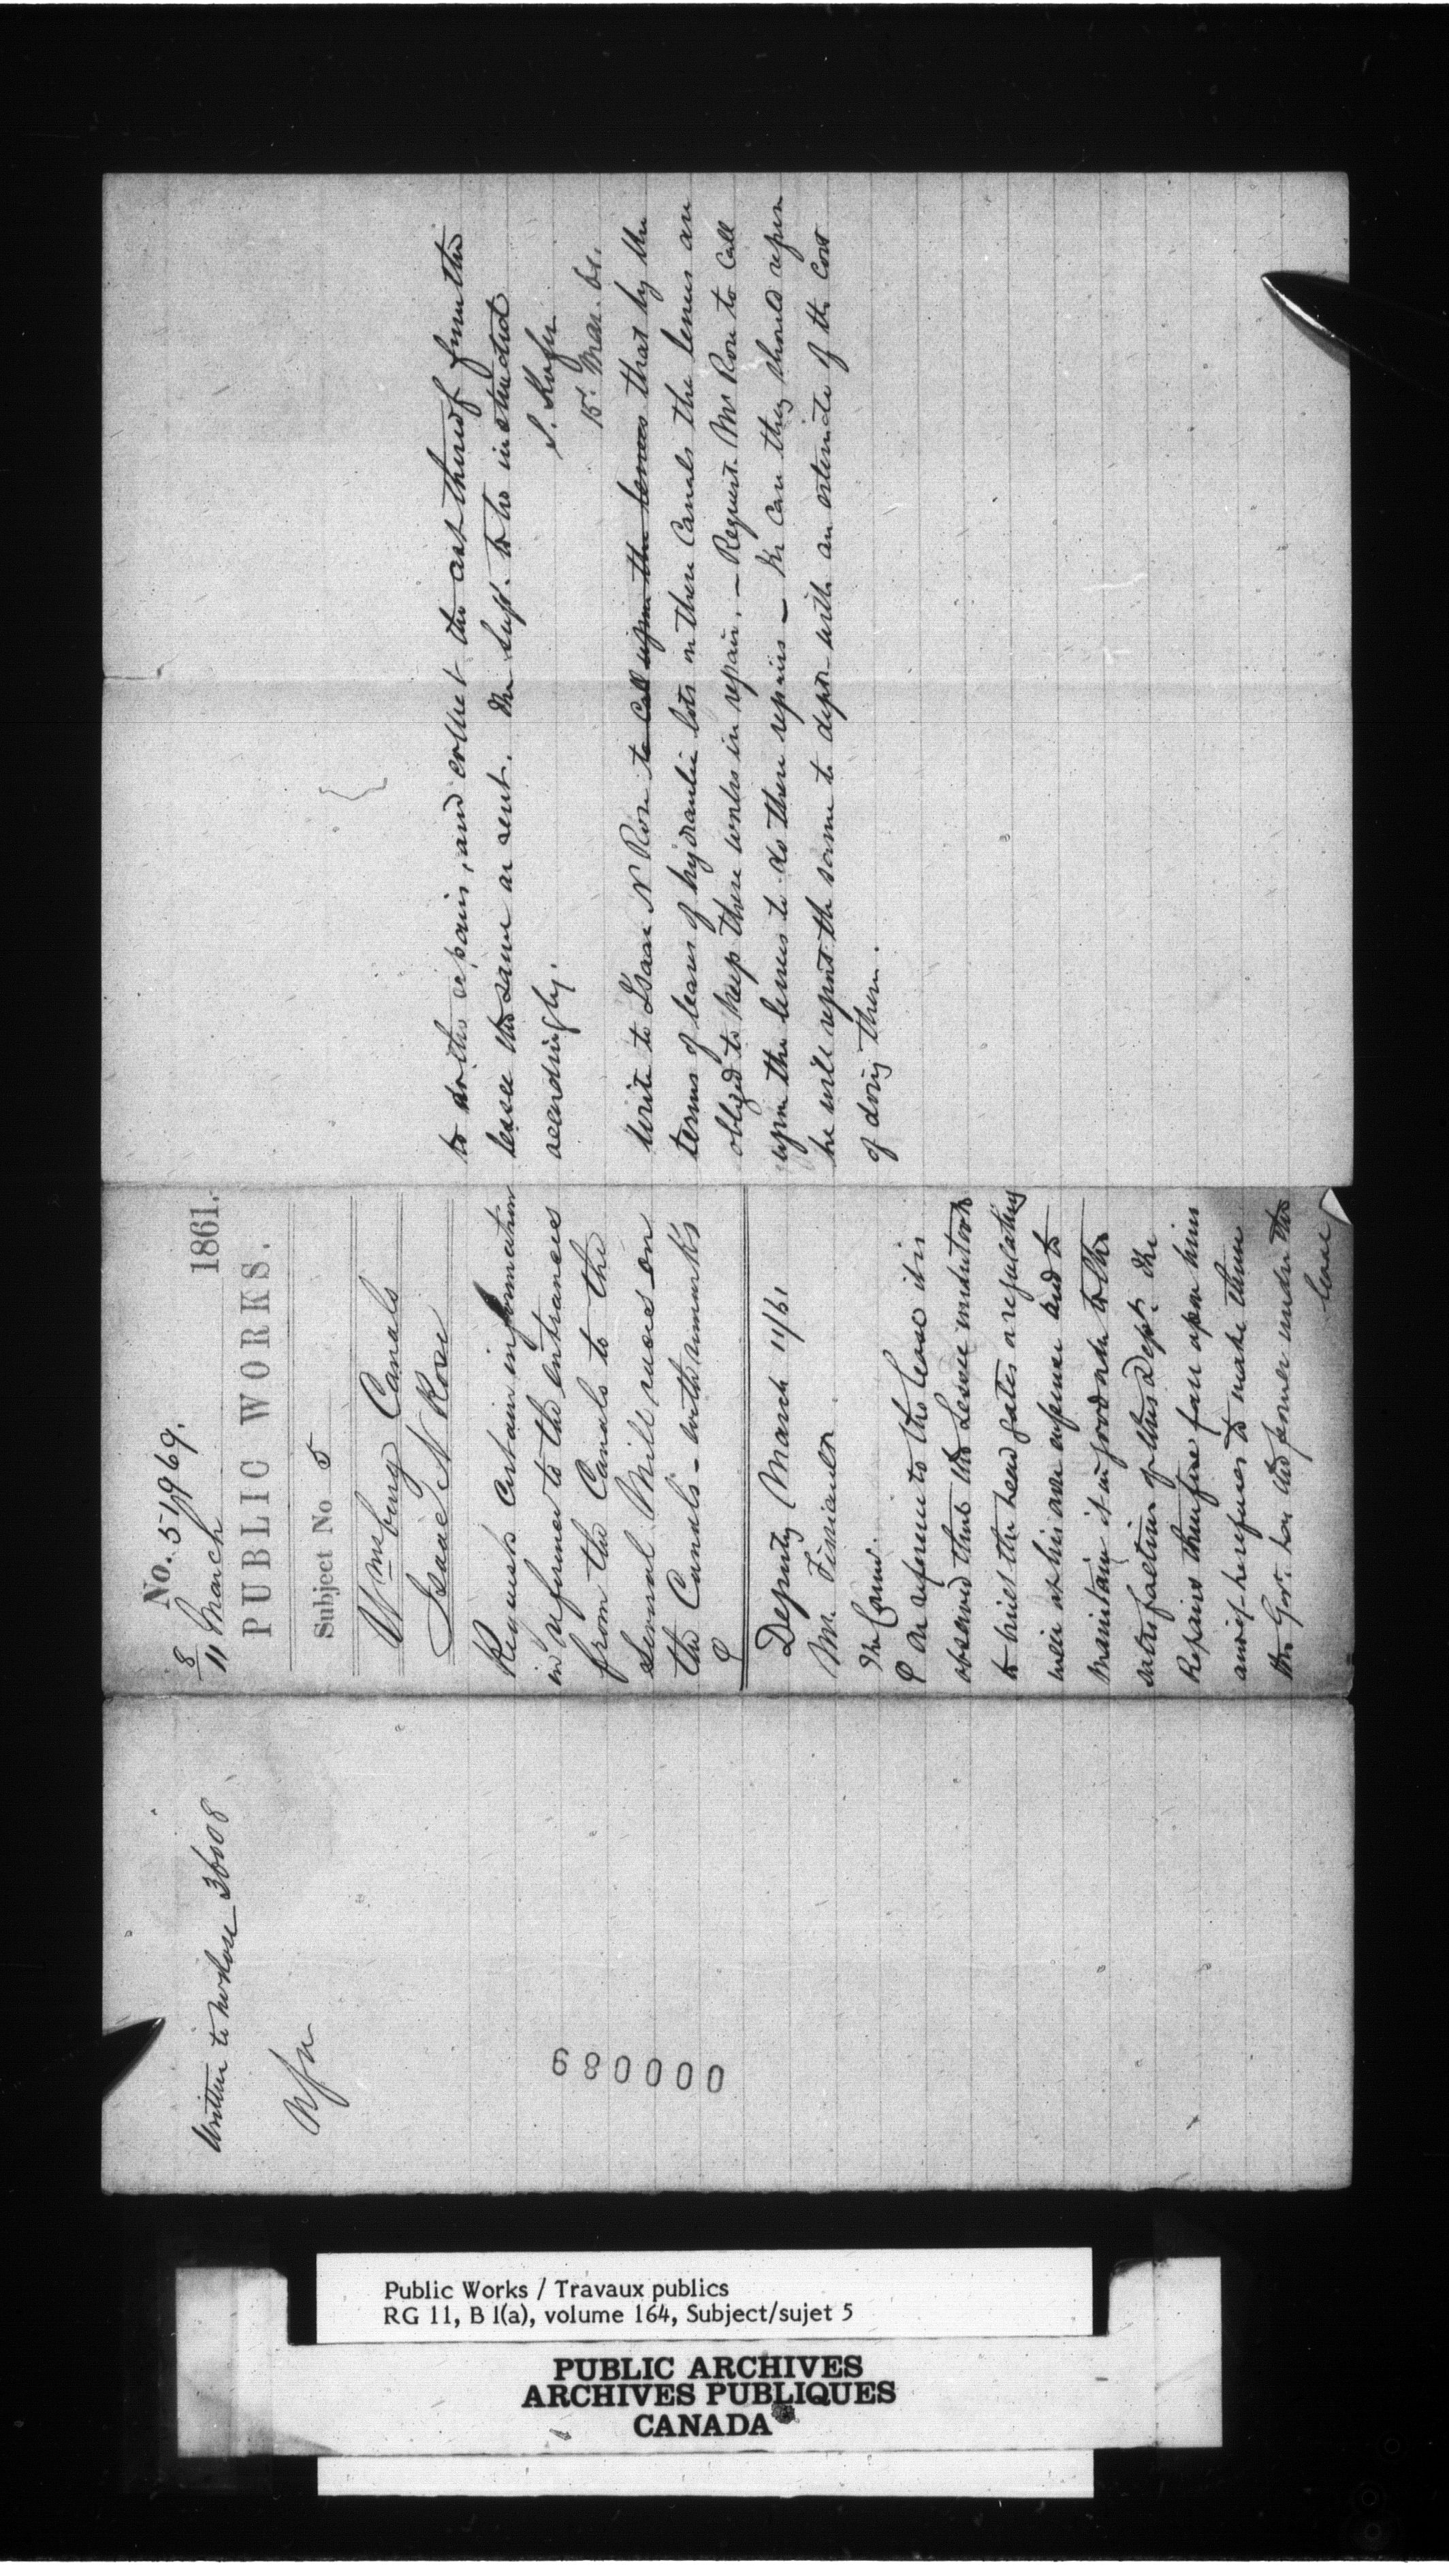 Written to Mr Rose 36008
000089
No. 51,969.
8
11 March 1861.
PUBLIC WORKS.
Subject No 5
Wmsburg Canals
Isaac N Rose
Requests certain information
in reference to the entrances
from the Canals to the
several Mill races on
the Canals - with remarks
Deputy March 11/61
Mr.
The Comr.
On reference to the lease it is
observed that the Lessee undertook
to build the head gates & regulating
weir at his own expense and to
maintain it in good order to the
satisfaction of this Dept. The
Repairs therefore fall upon him
and if he refuses to make them
the Govt. has the power under the
lease
to do the repairs, and collect the cost thereof from the
lessee the same as rent. The Supt. to be instructed
accordingly.
15. Mar. 61.
Write to Isaac N Rose to call upon the lessees that by the
terms of leases of hydraulic lots on these Canals the lessees are
obliged to keep these works in repair. - Request Mr Rose to call
upon the lessees to do these repairs - In case they should refuse
he will report the same to dept with an estimate of the cost
of doing them.
Public Works / Travaux publics
RG 11, B 1(a), volume 164, Subject/sujet 5
PUBLIC ARCHIVES
ARCHIVES PUBLIQUES
CANADA